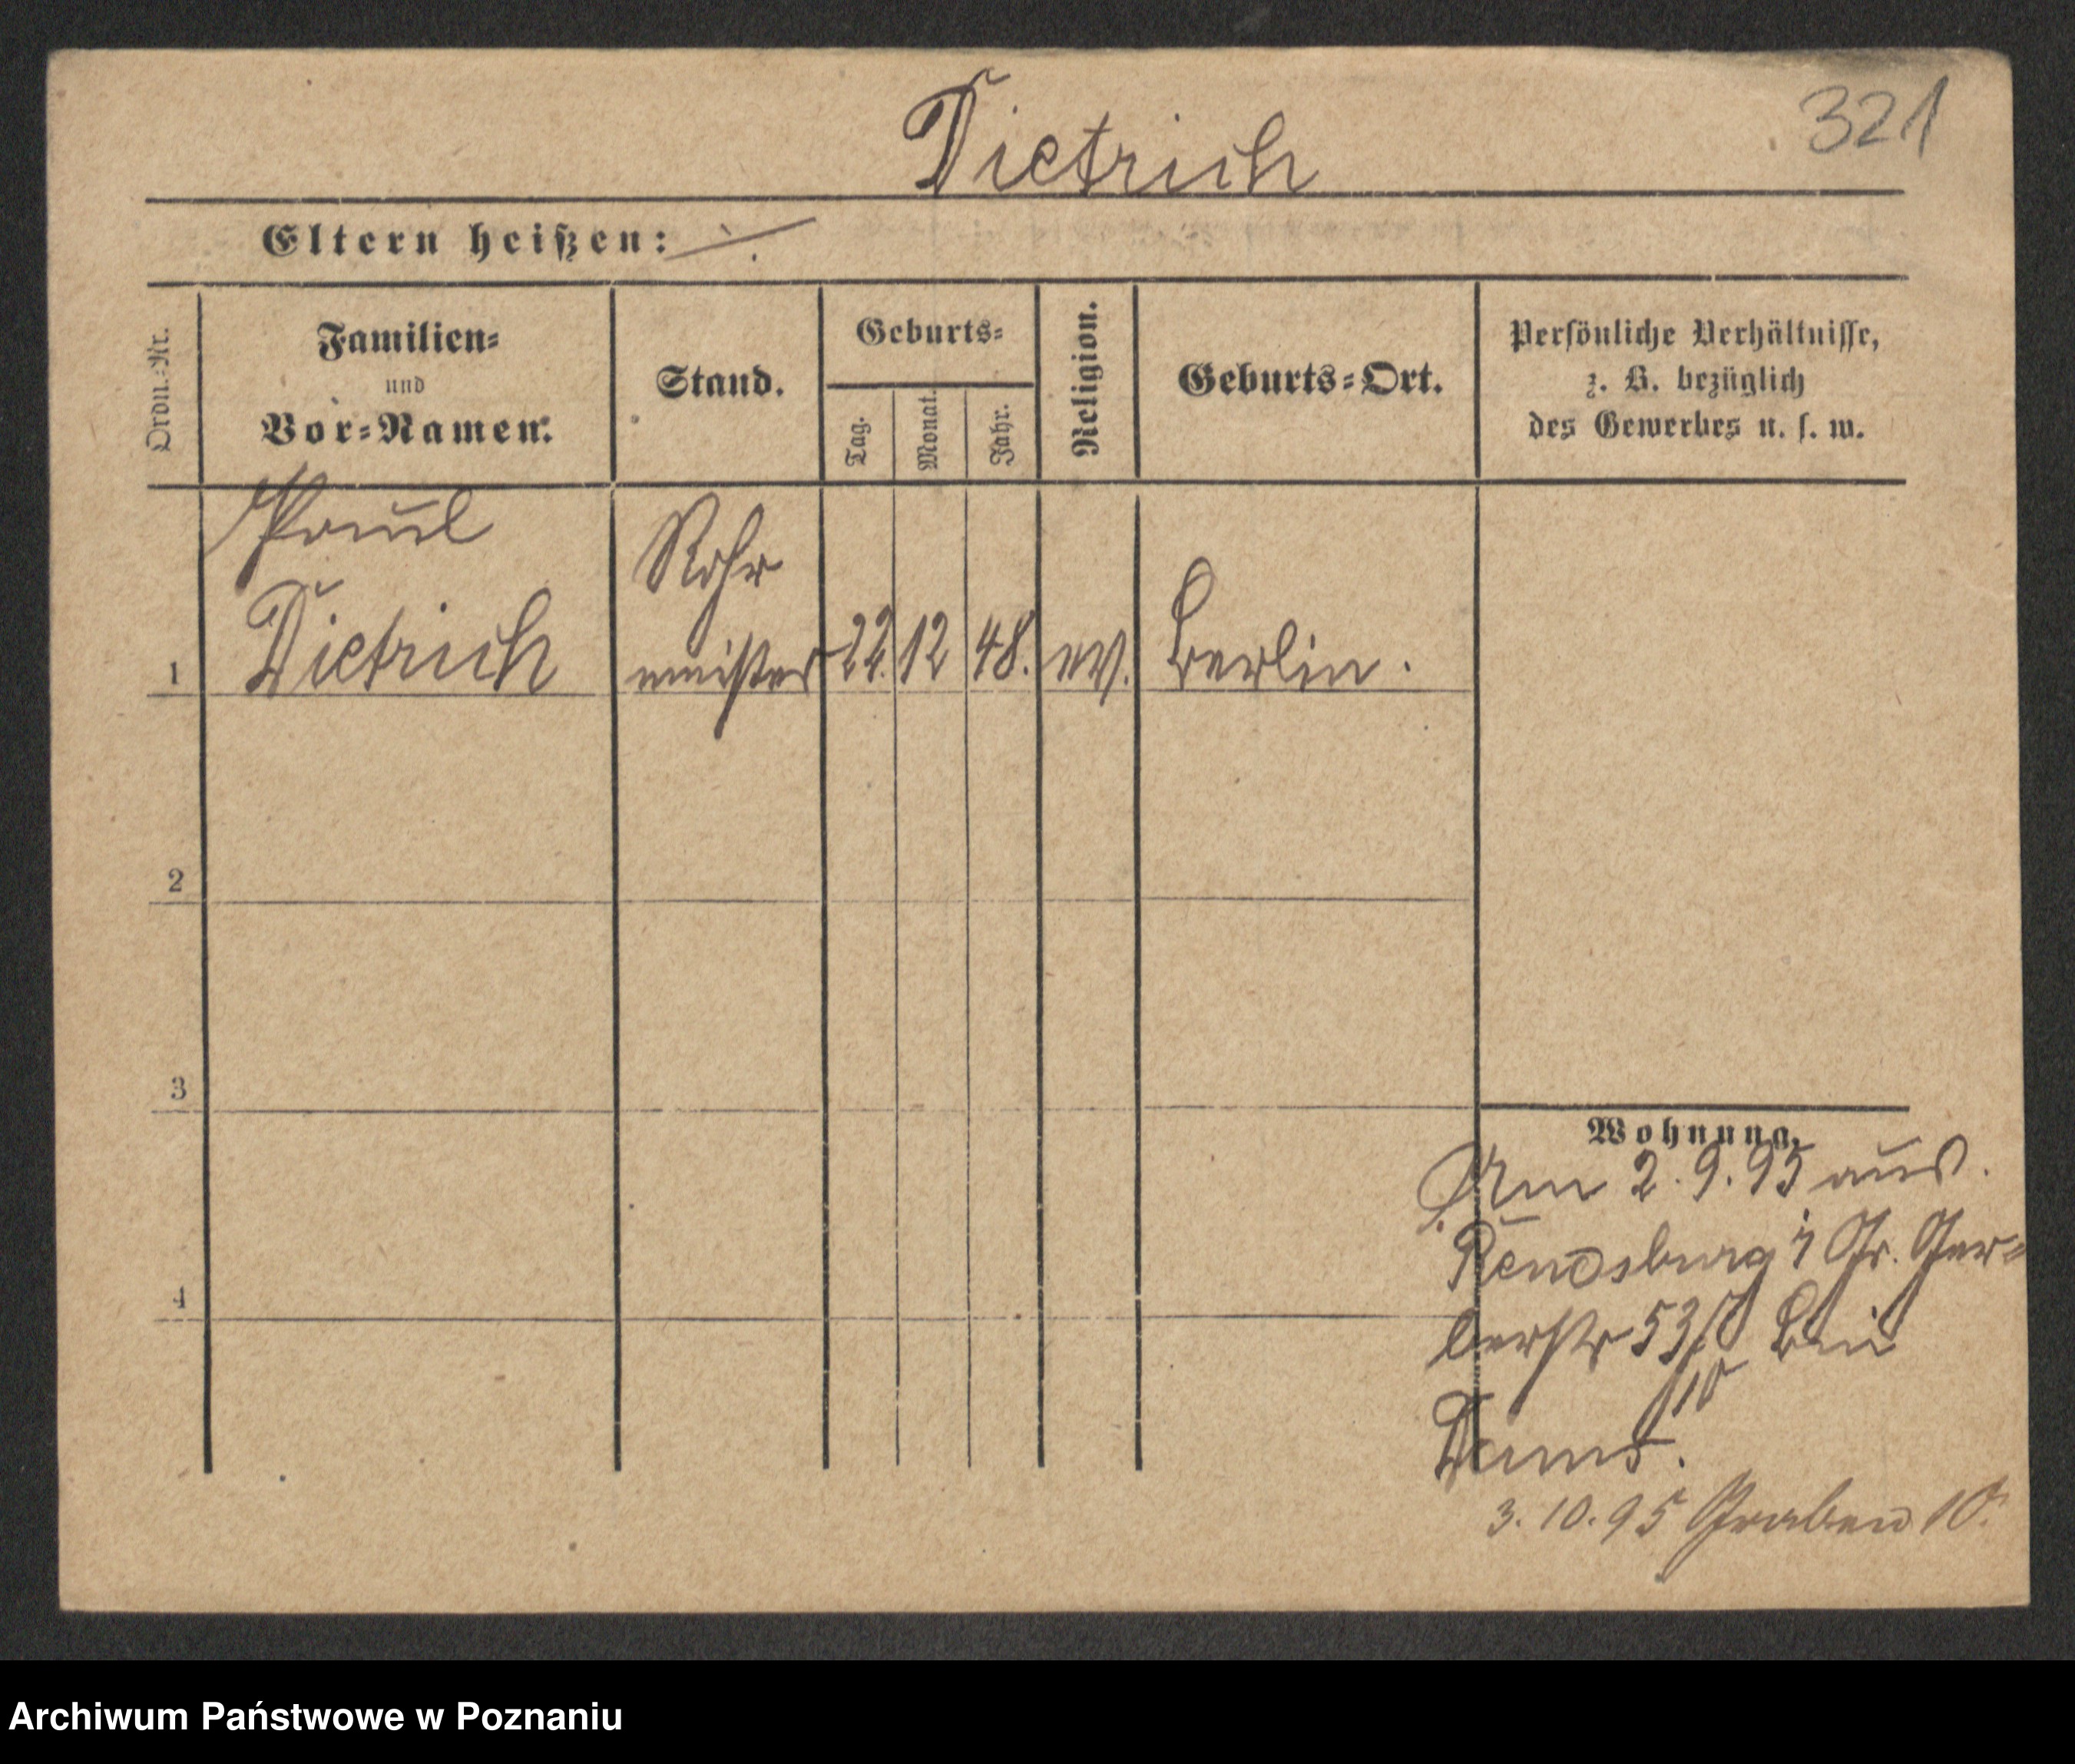 321
Dietrich
Eltern heißen: ./.
Ordn.-Nr.
Familien-
und
Vor-Namen.
Stand.
Geburts-
Tag.
Monat.
Jahr.
Religion.
Geburts-Ort.
Persönliche Verhältnisse,
z. B. bezüglich
des Gewerbes u. s. w.
Paul
Dietrich
Rohr
meister
1
22. 12 48. ev. Berlin.
2
3
4
Wohnung.
Am 2.9.95 aus.
Rendsburg Gr. Ger-
berstr 53 bei
Dams.
3.10.95 Graben 10.
Archiwum Państwowe w Poznaniu